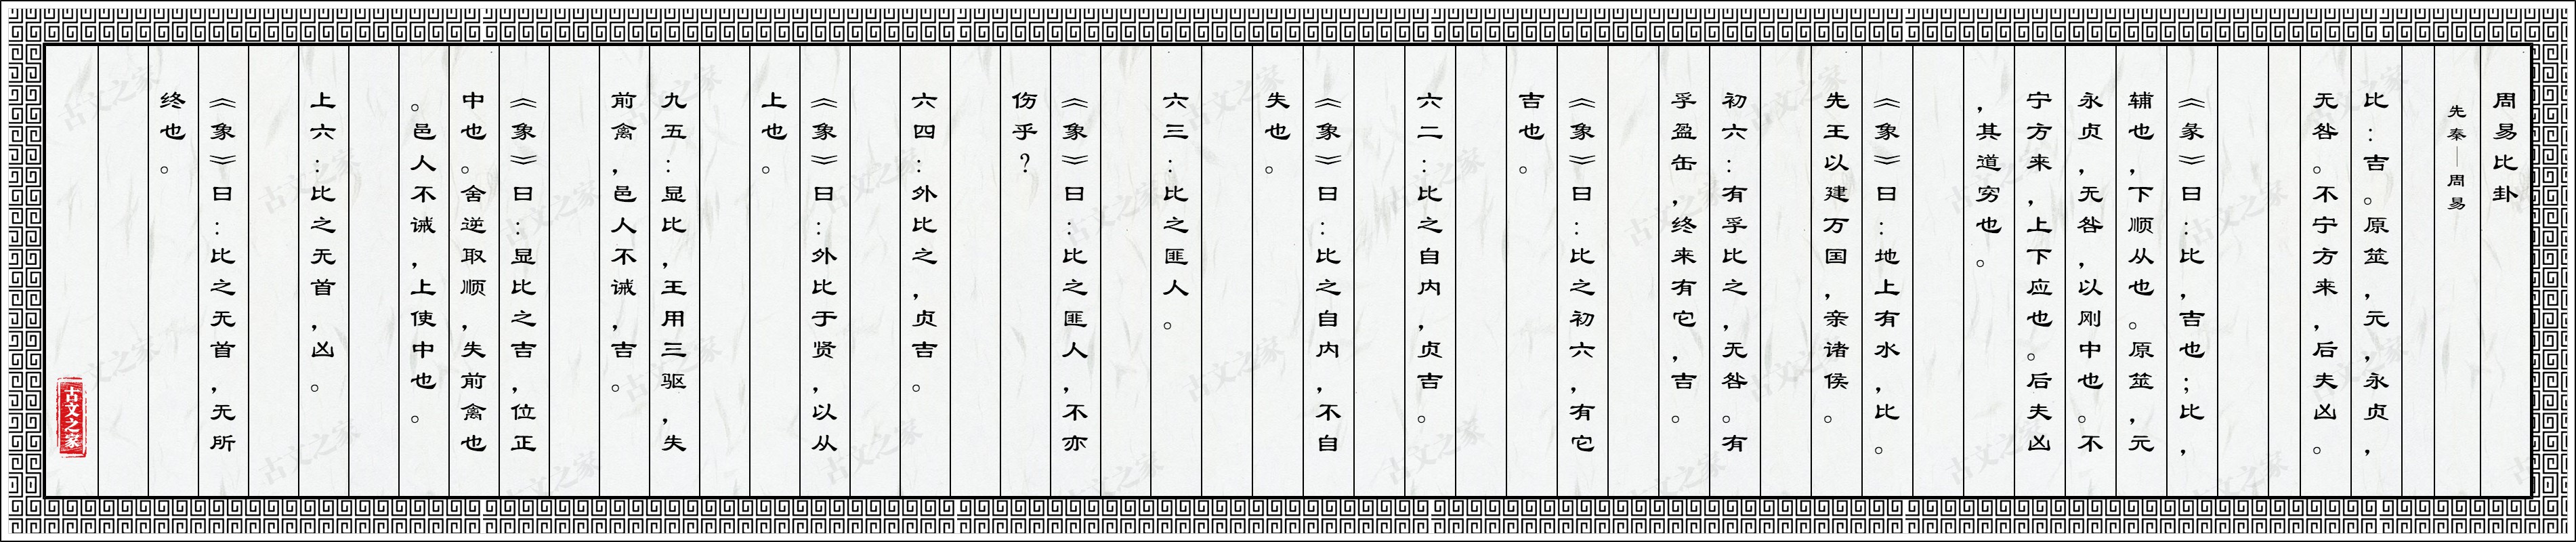 周易比卦
先秦—周易
比：吉。原筮，元，永贞，
无咎。不宁方来，后夫凶。
《彖》曰：比，吉也；比，
辅也，下顺从也。原筮，元
永贞，无咎，以刚中也。不
宁方来，上下应也。后夫凶
，其道穷也。
《象》曰：地上有水，比。
先王以建万国，亲诸侯。
初六：有孚比之，无咎。有
孚盈缶，终来有它，吉。
《象》曰：比之初六，有它
吉也。
六二：比之自内，贞吉。
《象》曰：比之自内，不自
失也。
六三：比之匪人。
《象》曰：比之匪人，不亦
伤乎？
六四：外比之，贞吉。
《象》曰：外比于贤，以从
上也。
九五：显比，王用三驱，失
前禽，邑人不诫，吉。
《象》曰：显比之吉，位正
中也。舍逆取顺，失前禽也
。邑人不诫，上使中也。
上六：比之无首，凶。
《象》曰：比之无首，无所
终也。
古文之家